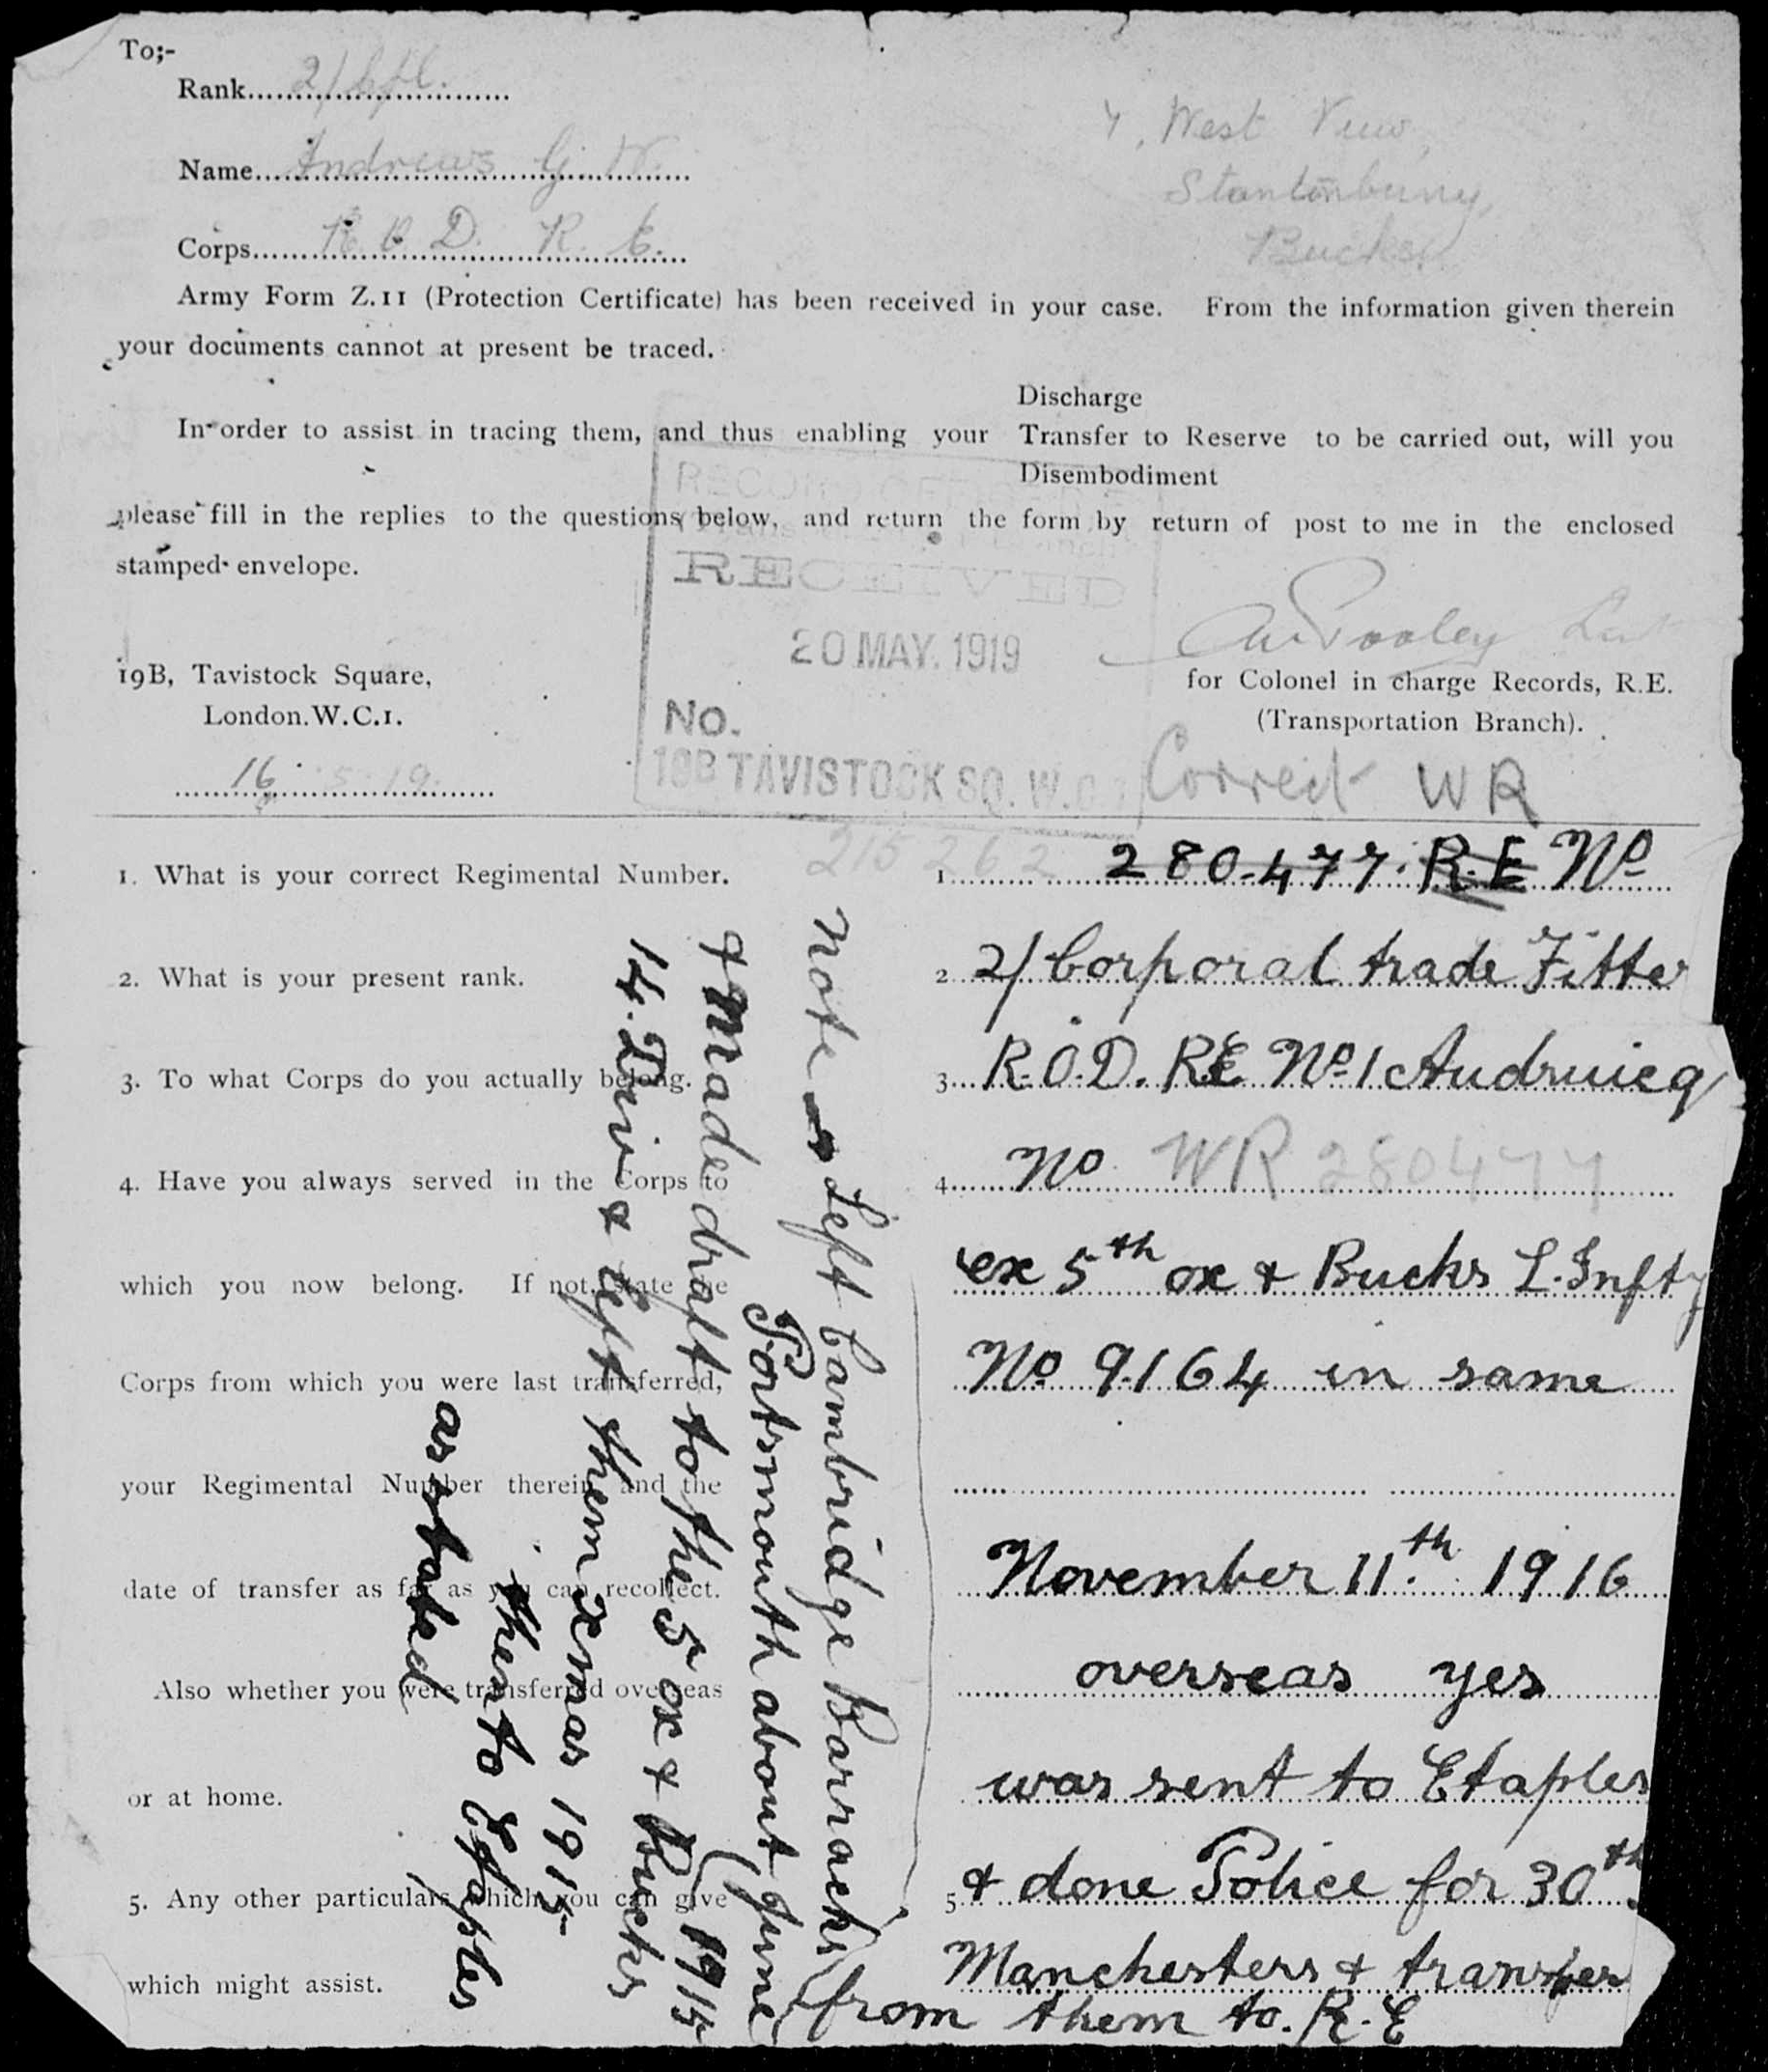 To;-
Rank 2/Cpl.
Name Andrews G. W.
Corps R. O. D. R. E.
7, West View,
Stantonbury,
Bucks.
Army Form Z.11 (Protection Certificate) has been received in your case. From the information given therein
your documents cannot at present be traced.
Discharge
In order to assist in tracing them, and thus enabling your Transfer to Reserve to be carried out, will you
Disembodiment
please fill in the replies to the questions below, and return the form by return of post to me in the enclosed
stamped envelope.
RECORD OFFICE
RECEIVED
20 MAY. 1919
No.
19B TAVISTOCK SQ. W.C.1
Pooley
for Colonel in charge Records, R.E.
(Transportation Branch).
19B, Tavistock Square,
London.W.C.1.
16.5.19.
Correct WR
215262
1. What is your correct Regimental Number. 1 280477. R.E No
2. What is your present rank. 2 2/Corporal trade Fitter
3. To what Corps do you actually belong. 3 R.O.D. RE No 1 Audruicq
4. Have you always served in the Corps to 4 No WR 280477
which you now belong. If not, state the ex 5th ox & Bucks L. Infty
Corps from which you were last transferred, No 9164 in same
your Regimental Number therein and the
date of transfer as far as you can recollect. November 11th 1916
Also whether you were transferred overseas overseas yes
or at home. was sent to Etaples
5. Any other particulars which you can give 5 & done Police for 30th
which might assist. Manchesters & transfer
from them to. R.E
note Left Cambridge Barracks
Portsmouth about June
& Made draft to the 5 ox & Bucks 1915
14. Div & left them xmas 1915
then to Etaples
as stated